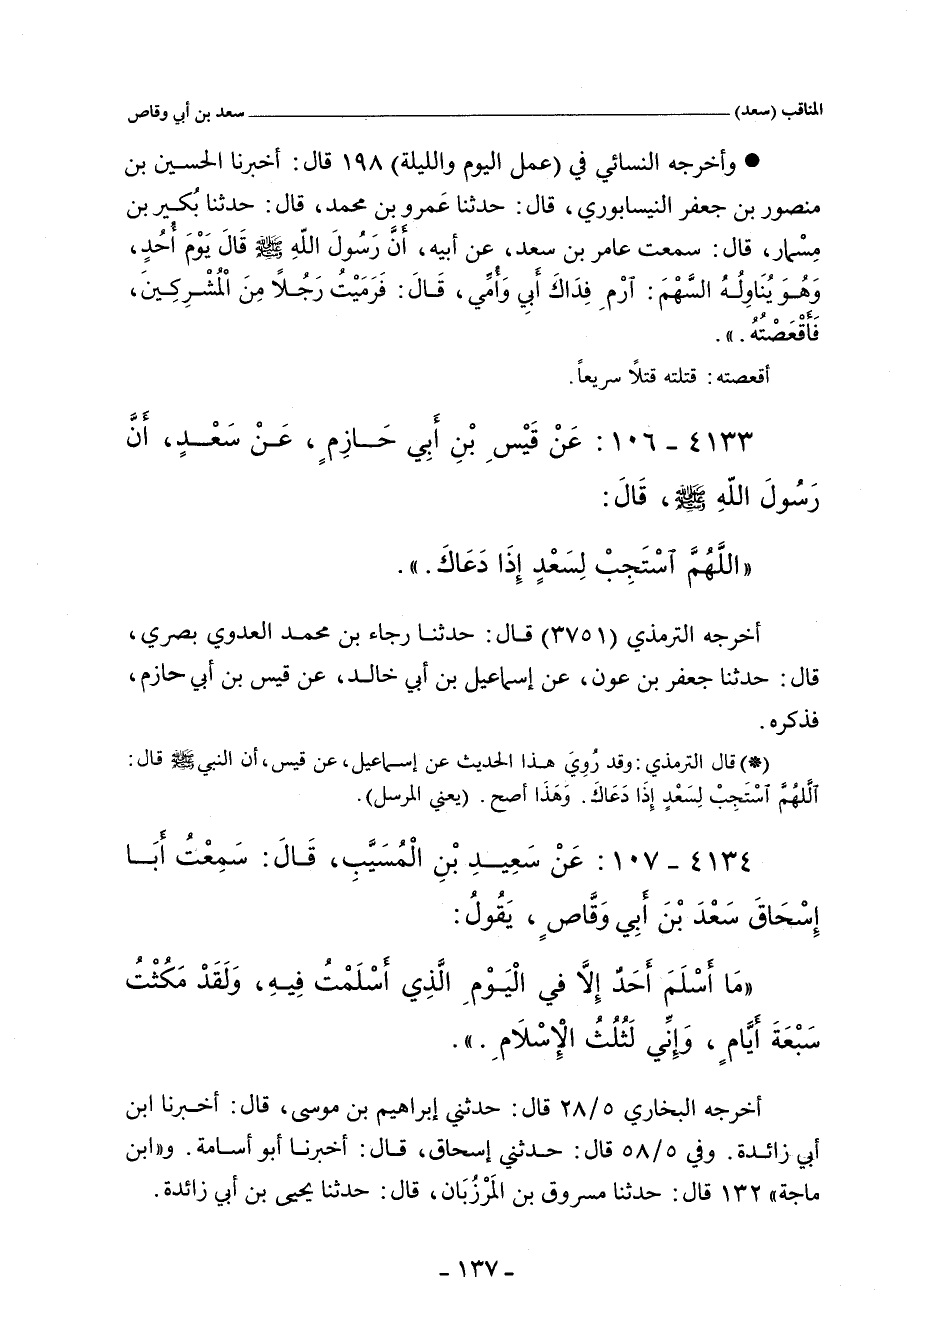 المناقب (سعد) ــــــــــــــــــــ سعد بن أبي وقاص
● وأخرجه النسائي في (عمل اليوم والليلة) ١٩٨ قال: أخبرنا الحسين بن
منصور بن جعفر النيسابوري، قال: حدثنا عَمرو بن محمد، قال: حدثنا بُكَير بن
مِسْمار، قال: سمعت عامر بن سعد، عن أبيه، أَنَّ رَسُولَ اللهِ ﷺ قَالَ يَوْمَ أُحُدٍ،
وَهُوَ يُنَاوِلُهُ السَّهْمَ: ٱرْمِ فِدَاكَ أَبِي وَأُمِّي، قَالَ: فَرَمَيْتُ رَجُلاً مِنَ الْمُشْرِكِينَ،
فَأَقْعَصْتُهُ.».
أقعصته: قتلته قتلاً سريعاً.
٤١٣٣ - ١٠٦: عَنْ قَيْسِ بْنِ أَبِي حَازِمٍ، عَنْ سَعْدٍ، أَنَّ
رَسُولَ اللهِ ﷺ، قَالَ:
«اللَّهُمَّ ٱسْتَجِبْ لِسَعْدٍ إِذَا دَعَاكَ.».
أخرجه الترمذي (٣٧٥١) قال: حدثنا رجاء بن محمد العدوي بصري،
قال: حدثنا جعفر بن عون، عن إسماعيل بن أبي خالد، عن قيس بن أبي حازم،
فذكره.
(*) قال الترمذي: وقد رُوِيَ هذا الحديث عن إسماعيل، عن قيس، أن النبي ﷺ قال:
ٱللَّهُمَّ ٱسْتَجِبْ لِسَعْدٍ إِذَا دَعَاكَ. وَهَذَا أصح. (يعني المرسل).
٤١٣٤ - ١٠٧: عَنْ سَعِيدِ بْنِ الْمُسَيَّبِ، قَالَ: سَمِعْتُ أَبَا
إِسْحَاقَ سَعْدَ بْنَ أَبِي وَقَّاصٍ، يَقُولُ:
«مَا أَسْلَمَ أَحَدٌ إِلاَّ فِي الْيَوْمِ الَّذِي أَسْلَمْتُ فِيهِ، وَلَقَدْ مَكَثْتُ
سَبْعَةَ أَيَّامٍ، وَإِنِّي لَثُلُثُ الْإِسْلَامِ.».
أخرجه البخاري ٢٨/٥ قال: حدثني إبراهيم بن موسى، قال: أخبرنا ابن
أبي زائدة. وفي ٥٨/٥ قال: حدثني إسحاق، قال: أخبرنا أبو أسامة. و«ابن
ماجة» ١٣٢ قال: حدثنا مسروق بن المَرْزُبَان، قال: حدثنا يحيى بن أبي زائدة.
- ١٣٧ -